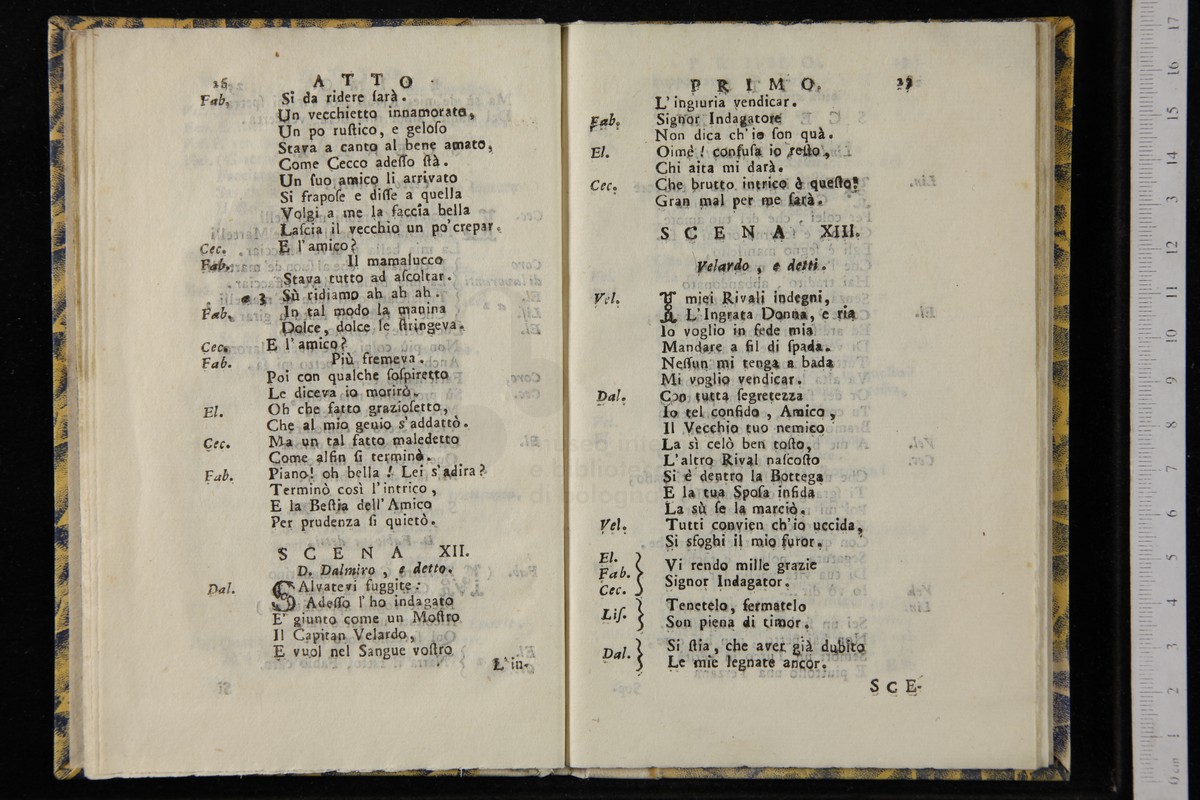 26 ATTO
Fab. Si da ridere ſarà.
Un vecchietto innamorato,
Un po ruſtico, e geloſo
Stava a canto al bene amato,
Come Cecco adeſſo ſtà.
Un ſuo amico li arrivato
Si frapoſe e diſſe a quella
Volgi a me la faccia bella
Laſcia il vecchio un po'crepar.
Cec. E l'amico?
Fab. Il mamalucco
Stava tutto ad aſcoltar.
a 3 Sù ridiamo ah ah ah.
Fab. In tal modo la manina
Dolce, dolce le ſtringeva.
Cec. E l'amico?
Fab. Più fremeva.
Poi con qualche ſoſpiretto
Le diceva io morirò.
El. Oh che fatto grazioſetto,
Che al mio genio s'addattò.
Cec. Ma un tal fatto maledetto
Come alfin ſi terminò.
Fab. Piano! oh bella! Lei s'adira?
Terminò così l'intrico,
E la Beſtia dell'Amico
Per prudenza ſi quietò.
SCENA XII.
D. Dalmiro, e detto.
Dal. SAlvatevi fuggite:
Adeſſo l'ho indagato
E' giunto come un Moſtro
Il Capitan Velardo,
E vuol nel Sangue voſtro
L'in-
PRIMO. 27
L'ingiuria vendicar.
Fab. Signor Indagatore
Non dica ch'io ſon quà.
El. Oimè! confuſa io reſto,
Chi aita mi darà.
Cec. Che brutto intrico è queſto!
Gran mal per me ſarà.
SCENA XIII.
Velardo, e detti.
Vel. I miei Rivali indegni,
L'Ingrata Donna, e ria
Io voglio in fede mia
Mandare a fil di ſpada.
Neſſun mi tenga a bada
Mi voglio vendicar.
Dal. Con tutta ſegretezza
Io tel confido, Amico,
Il Vecchio tuo nemico
La sì celò ben toſto,
L'altro Rival naſcoſto
Si è dentro la Bottega
E la tua Spoſa infida
La sù ſe la marciò.
Vel. Tutti convien ch'io uccida,
Si sfoghi il mio furor.
El.
Fab. Vi rendo mille grazie
Cec. Signor Indagator.
Liſ. Tenetelo, fermatelo
Son piena di timor.
Dal. Si ſtia, che aver già dubito
Le mie legnate ancor.
SCE-